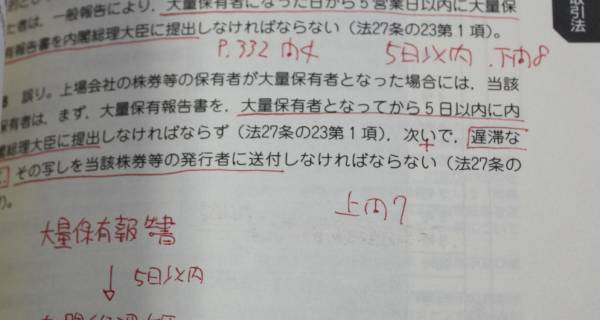 た者は、一般報告により、大量保有者になった日から5営業日以内に大量保
有報告書を内閣総理大臣に提出しなければならない（法27条の23第1項）。
P.332 内4 5日以内 下内8
誤り。上場会社の株券等の保有者が大量保有者となった場合には、当該
保有者は、まず、大量保有報告書を、大量保有者となってから5日以内に内
閣総理大臣に提出しなければならず（法27条の23第1項）、次いで、遅滞な
く、その写しを当該株券等の発行者に送付しなければならない（法27条の
）。
上内7
大量保有報告書
↓ 5日以内
取引法